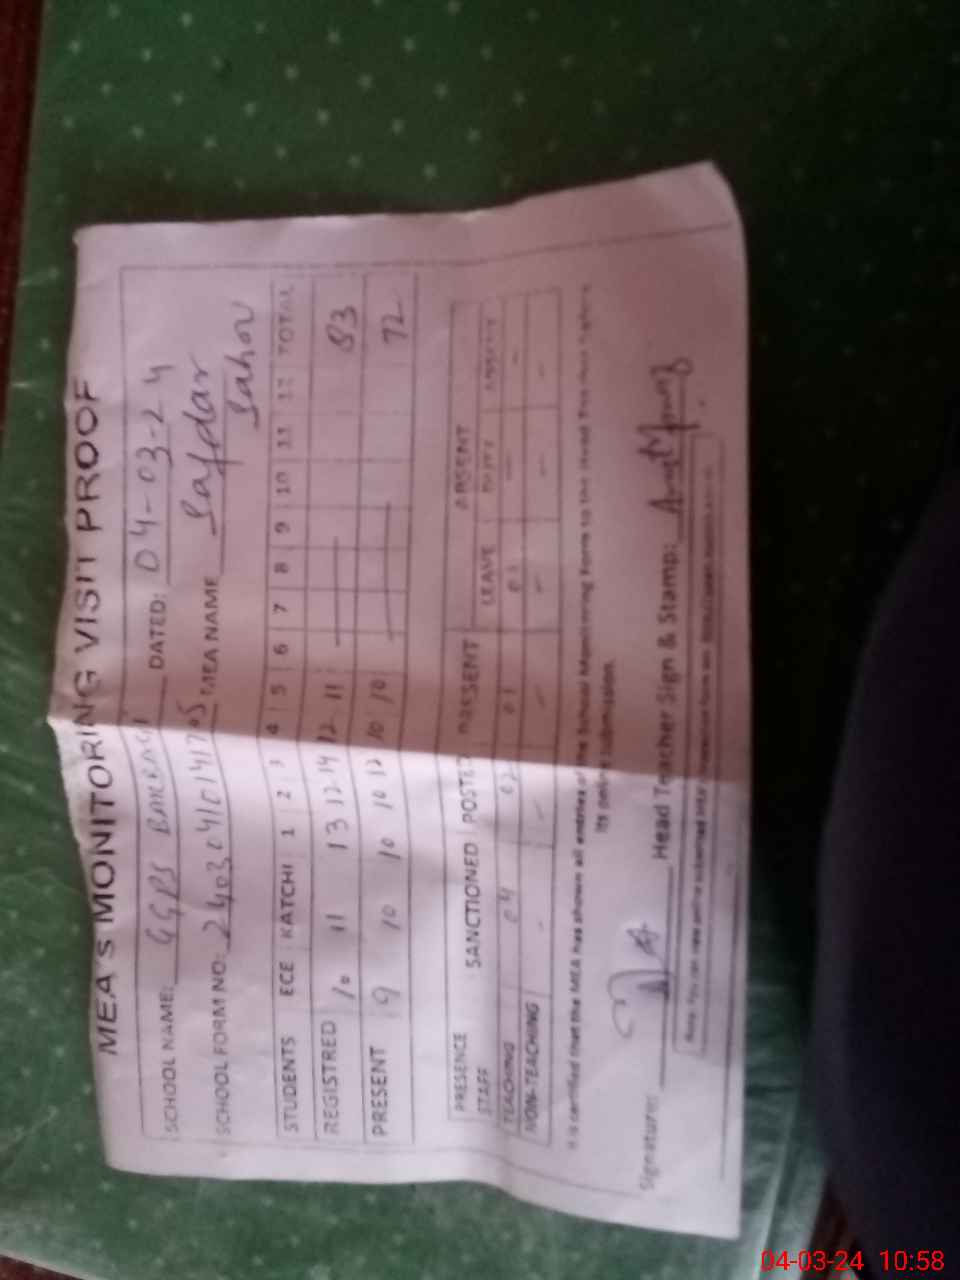 MEA'S MONITORING VISIT PROOF
SCHOOL NAME: GGPS DATED: 04-03-24
SCHOOL FORM NO: MEA NAME Safdar
Sahou
STUDENTS ECE KATCHI 1 2 3 4 5 6 7 8 9 10 11 12 TOTAL
REGISTRED 10 11 13 12 14 12 11 83
PRESENT 9 10 10 10 12 10 10 72
PRESENCE SANCTIONED POSTED PRESENT ABSENT
STAFF LEAVE DUTY ABSENT
TEACHING 04 02 01 01 - -
NON-TEACHING - - - - - -
It is certified that the MEA has shown all entries of the School Monitoring Form to the Head Teacher before
its online submission.
Signature: Head Teacher Sign & Stamp:
04-03-24 10:58